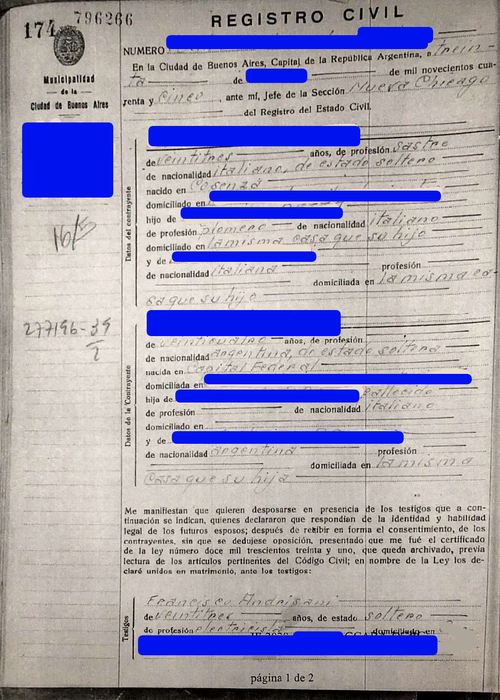 174 796266
REGISTRO CIVIL
Municipalidad
de la
Ciudad de Buenos Aires
NUMERO
En la Ciudad de Buenos Aires, Capital de la República Argentina, a trein
ta de de mil novecientos cua
renta y Cinco, ante mí, Jefe de la Sección Nueva Chicago
del Registro del Estado Civil.
Datos del contrayente
de veintitres años, de profesión sastre
de nacionalidad italiano, de estado soltero
nacido en Cosenza
domiciliado en
hijo de
de profesión plomero de nacionalidad italiano
domiciliado en la misma casa que su hijo
y de
de nacionalidad italiana profesión
domiciliada en la misma ca-
sa que su hijo
16/5
277196-39
Datos de la Contrayente
de veinticuatro años, de profesión
de nacionalidad argentina, de estado soltera
nacida en Capital Federal
domiciliada en
hija de fallecido
de profesión de nacionalidad italiano
domiciliado en
y de
de nacionalidad argentina profesión
domiciliada en la misma
casa que su hija
Me manifestan que quieren desposarse en presencia de los testigos que a con-
tinuación se indican, quienes declararon que respondían de la identidad y habilidad
legal de los futuros esposos; después de recibir en forma el consentimiento, de los
contrayentes, sin que se dedujese oposición, presentado que me fué el certificado
de la ley número doce mil trescientos treinta y uno, que queda archivado, previa
lectura de los artículos pertinentes del Código Civil; en nombre de la Ley los de-
claré unidos en matrimonio, ante los testigos:
Testigos
Francisco Andrisani
de veintitres años, de estado soltero
de profesión electricista domiciliado en
página 1 de 2